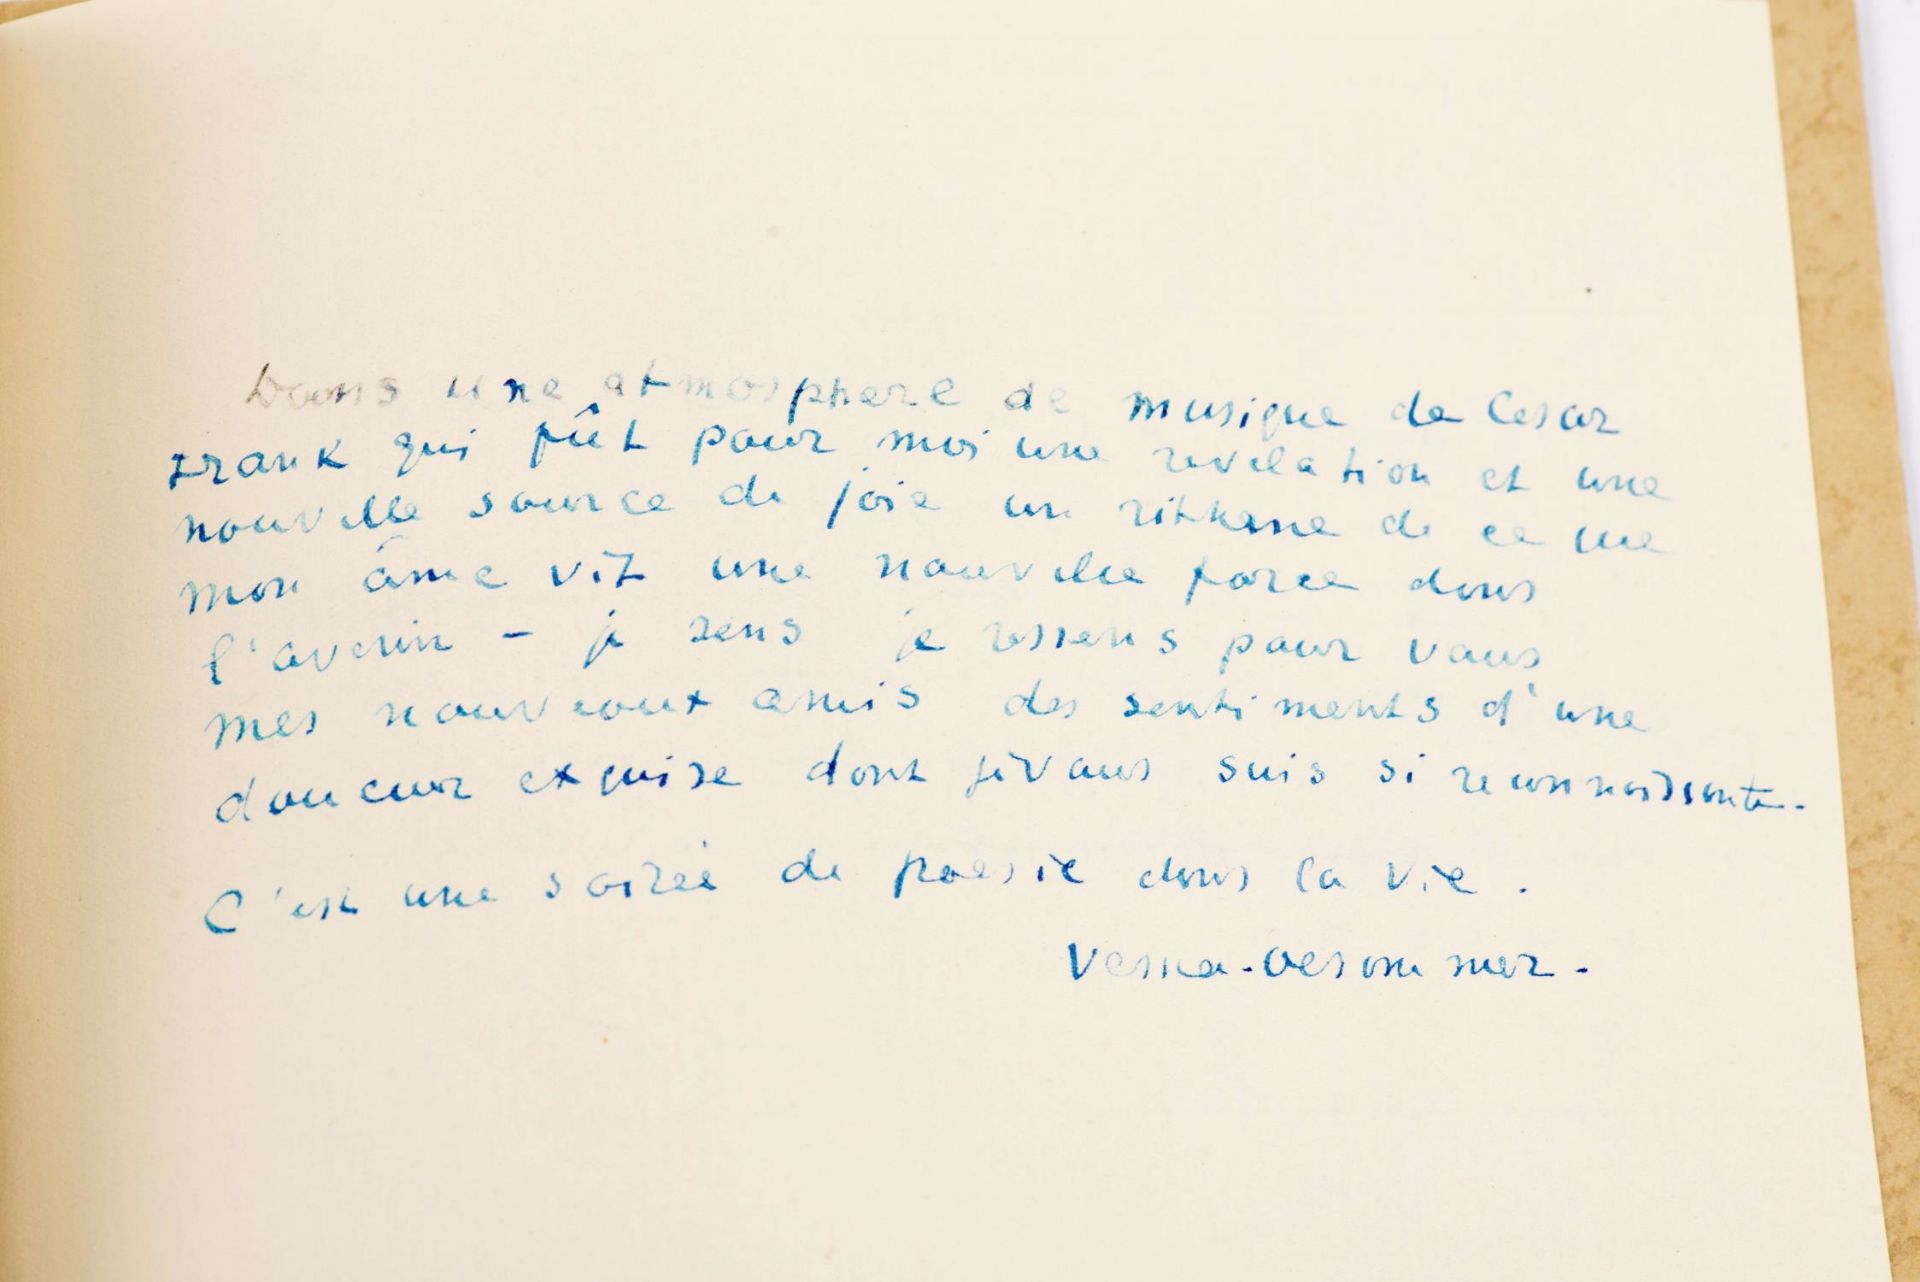 Dans une atmosphere de musique de Cesar
Frank qui fût pour moi une revelation et une
nouvelle source de joie un de ce
mon âme vit une nouvelle force dans
l'avenir - je sens je ressens pour vous
mes nouveaux amis des sentiments d'une
douceur exquise dont je vous suis si reconnaissante.
C'est une soirée de poesie dans la vie.